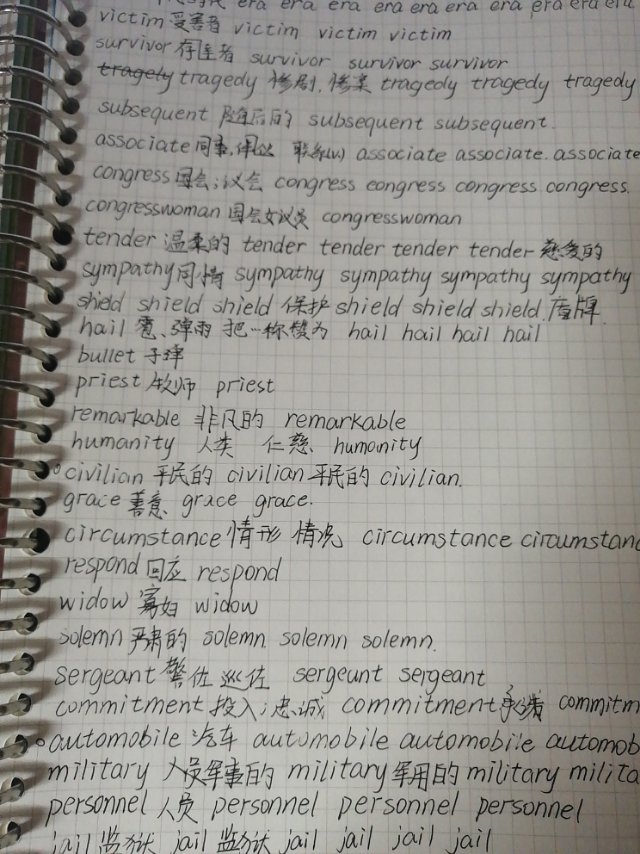 era era era era era era era era era
victim 受害者 victim victim victim
survivor 存活者 survivor survivor survivor
tragely tragedy 惨剧, 惨案 tragedy tragedy tragedy
subsequent 随后的 subsequent subsequent.
associate 同事, 联系 associate associate. associate
congress 国会; 议会 congress congress congress congress.
congresswoman 国会女议员 congresswoman
tender 温柔的 tender tender tender tender 慈爱的
sympathy 同情 sympathy sympathy sympathy sympathy
shield shield shield 保护 shield shield shield. 盾牌
hail 雹、弹雨 把…称赞为 hail hail hail hail
bullet 子弹
priest 牧师 priest
remarkable 非凡的 remarkable
humanity 人类 仁慈 humanity
civilian 平民的 civilian 平民的 civilian.
grace 善意 grace grace.
circumstance 情形 情况 circumstance circumstan
respond 回应 respond
widow 寡妇 widow
solemn 严肃的 solemn solemn solemn.
sergeant 警佐 巡佐 sergeunt sergeant
commitment 投入; 忠诚 commitment 承诺 commitm
automobile 汽车 automobile automobile automob
military 军事的 military 军用的 military milita
personnel 人员 personnel personnel personnel
jail 监狱 jail 监狱 jail jail jail jail